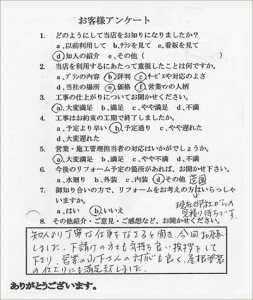 お客様アンケート
1. どのようにして当店をお知りになりましたか?
a.以前利用して b.チラシを見て c.看板を見て
d.知人の紹介 e.その他( )
2. 当店を利用するにあたって重視したことは何ですか。
a.プランの内容 b.評判 c.サービスや対応のよさ
d.当社の場所 e.価格 f.営業マンの人柄
3. 工事の仕上がりについてお聞かせください。
a.大変満足 b.満足 c.やや不満 d.不満
4. 工事はお約束の工期で終了しましたか。
a.予定より早い b.予定通り c.やや遅れた
d.大変遅れた
5. 営業・施工管理担当者の対応はいかがでしょうか。
a.大変満足 b.満足 c.やや不満 d.不満
6. 今後のリフォーム予定の箇所があれば、お聞かせ下さい。
a.水廻り b.外装 c.内装 d.その他
7. 御知り合いの方で、リフォームをお考えの方はいらっしゃいますか。
a.はい b.いいえ
8. その他紹介・ご意見・ご感想など、お聞かせください。
知人より丁寧な仕事をなさると聞き、今回お願い
しました。下請けの方も気持ち良い挨拶をして
下さり、営業の山下さんの対応も良く、屋根塗装
の仕上りにも満足致しました。
ありがとうございます。